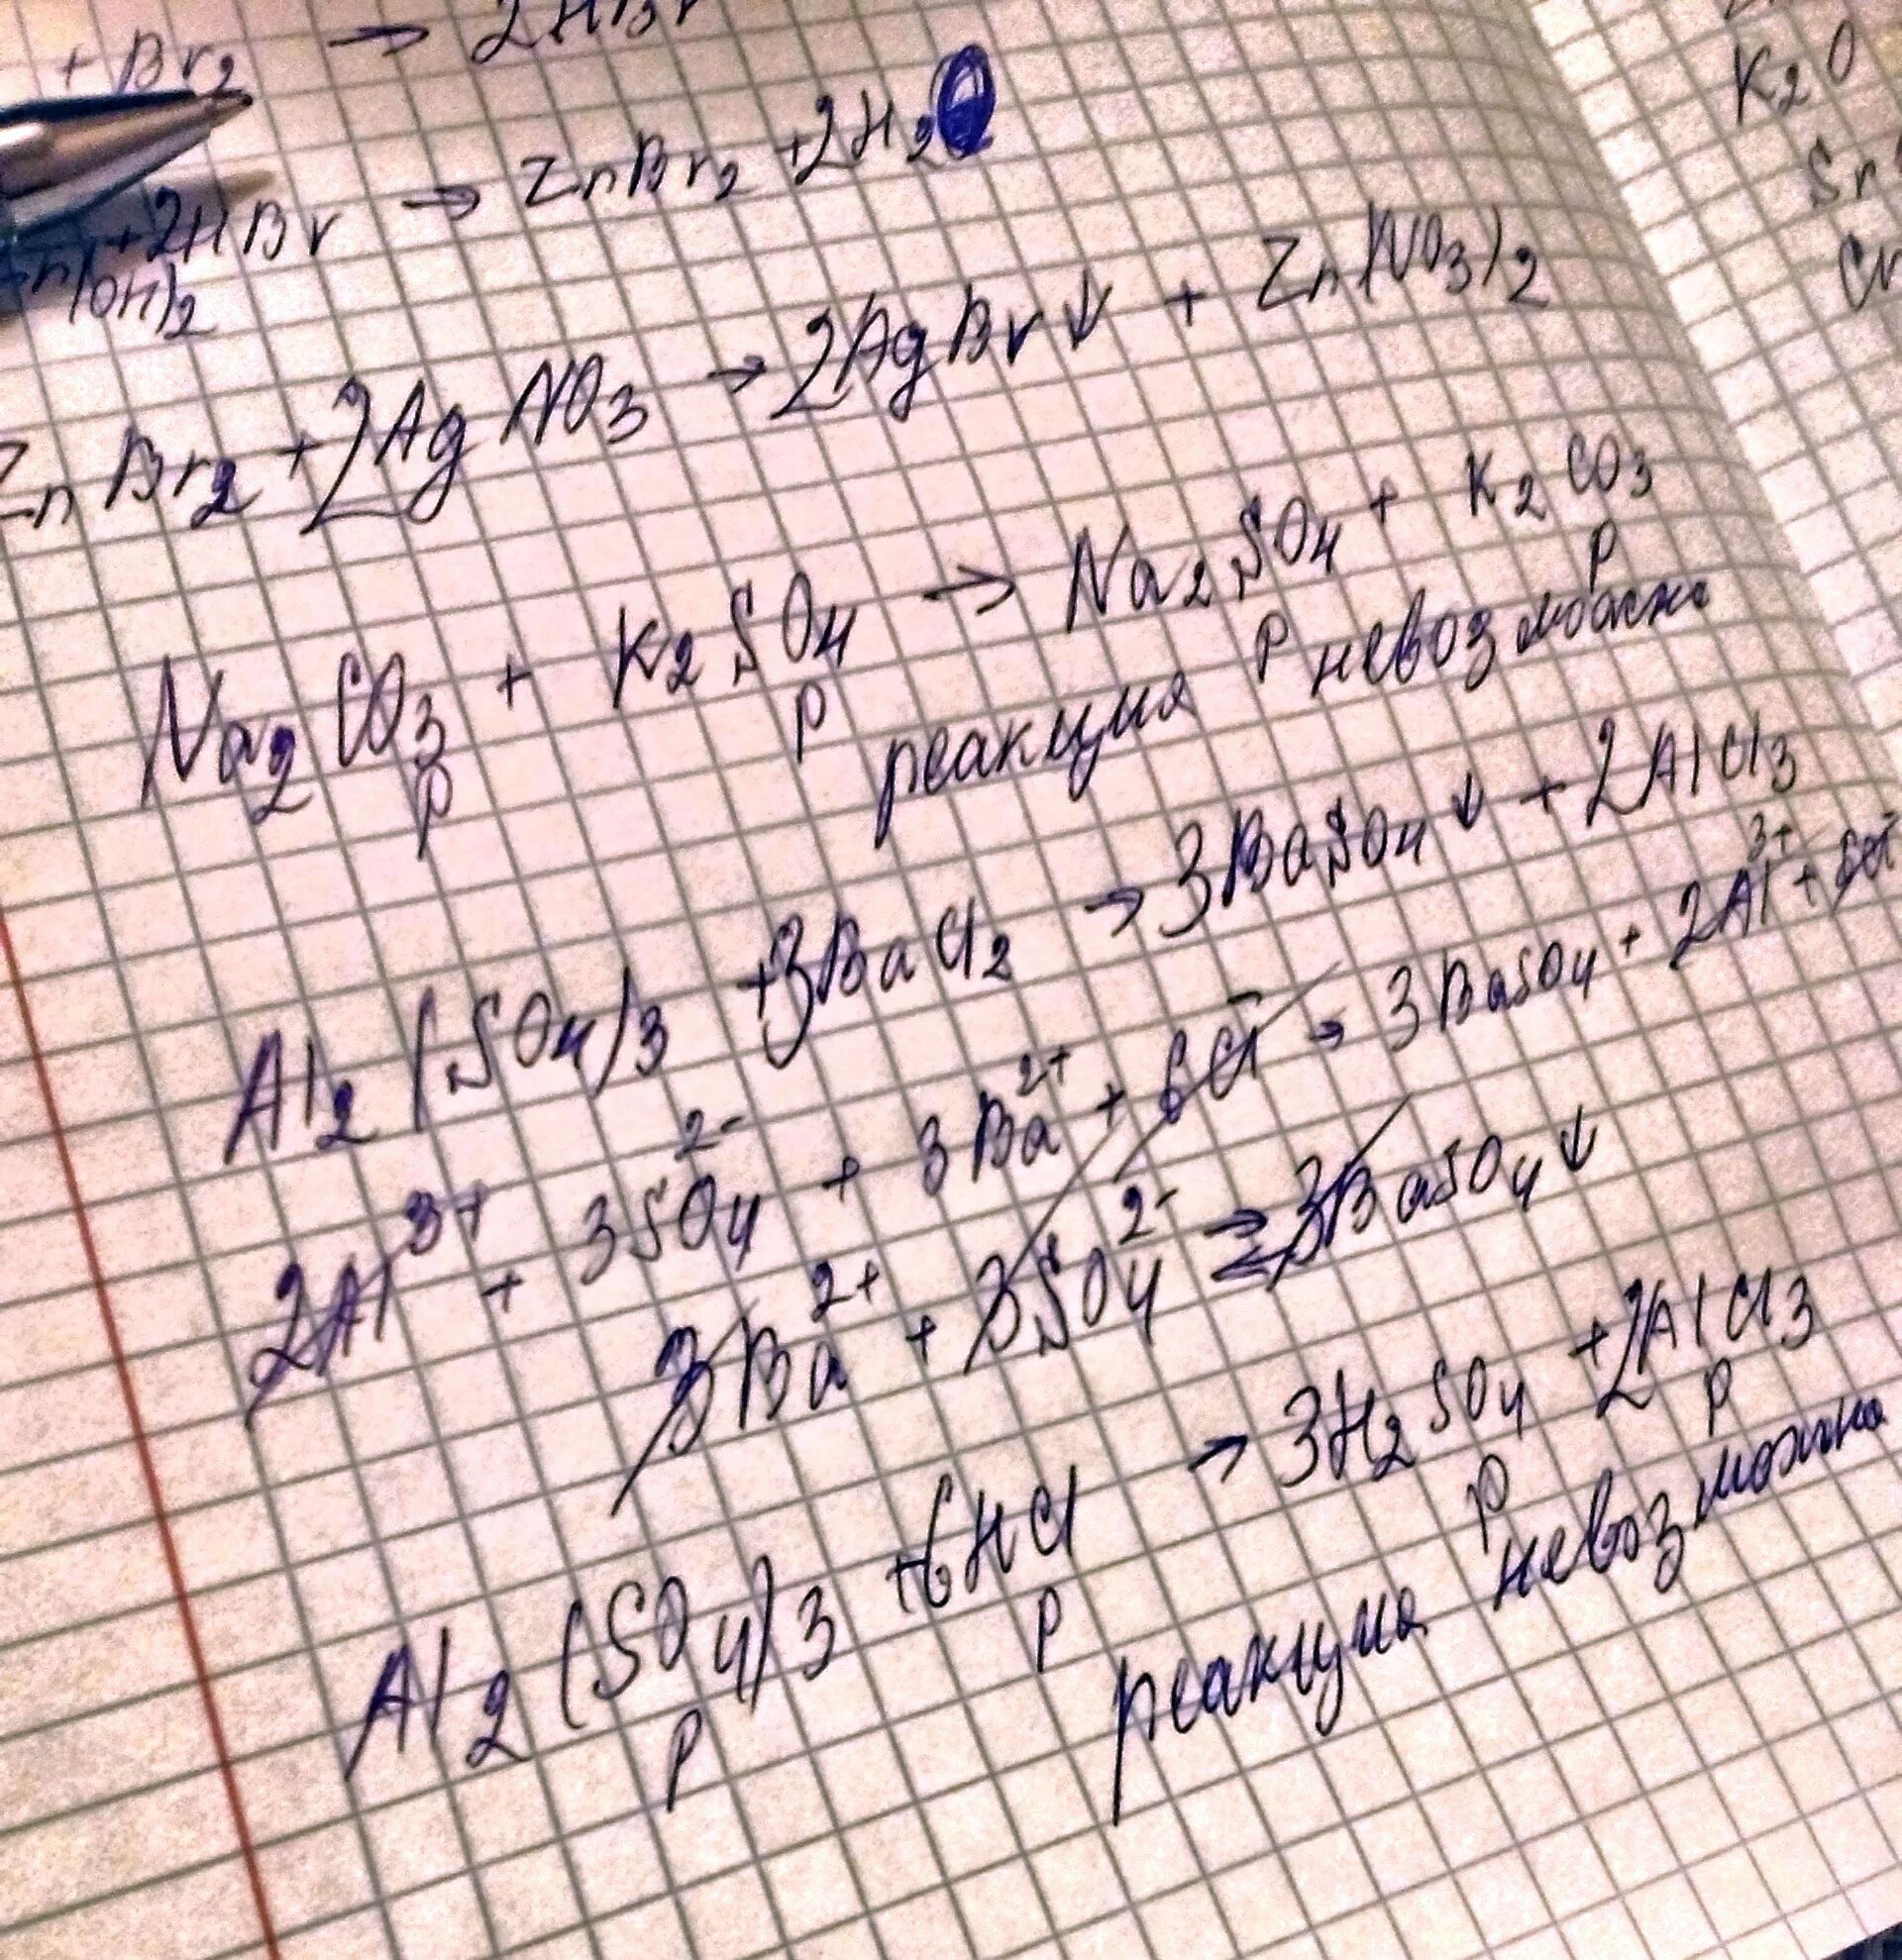 + Br2 → 2HBr
+ 2HBr → ZnBr2 + 2H2O
(OH)2
ZnBr2 + 2AgNO3 → 2AgBr↓ + Zn(NO3)2
Na2CO3 + K2SO4 → Na2SO4 + K2CO3
р р р р
реакция невозможна
Al2(SO4)3 + 3BaCl2 → 3BaSO4↓ + 2AlCl3
2Al3+ + 3SO42- + 3Ba2+ + 6Cl- → 3BaSO4 + 2Al3+ + 6Cl-
3Ba2+ + 3SO42- → 3BaSO4↓
Al2(SO4)3 + 6HCl → 3H2SO4 + 2AlCl3
р р р р
реакция невозможна
K2O